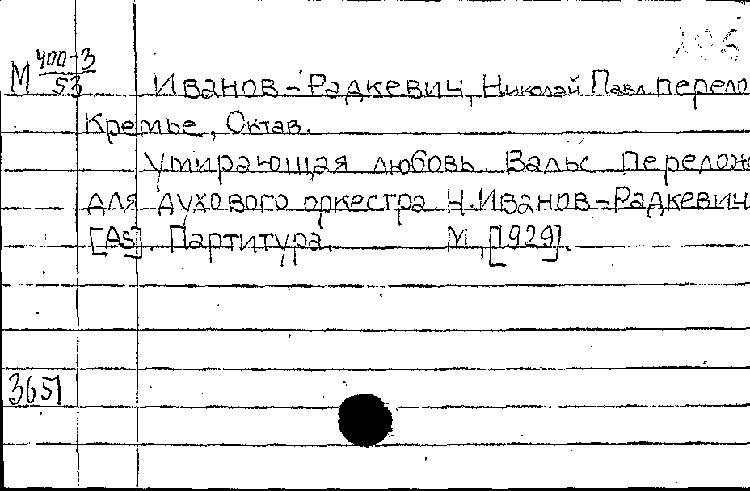 М 400-3
53
Иванов-Радкевич, Николай Павл. перело
Кремье, Октав.
Умирающая любовь. Вальс. Перелож
для духового оркестра Н.Иванов-Радкевич
[As]. Партитура. М., [1929].
3651